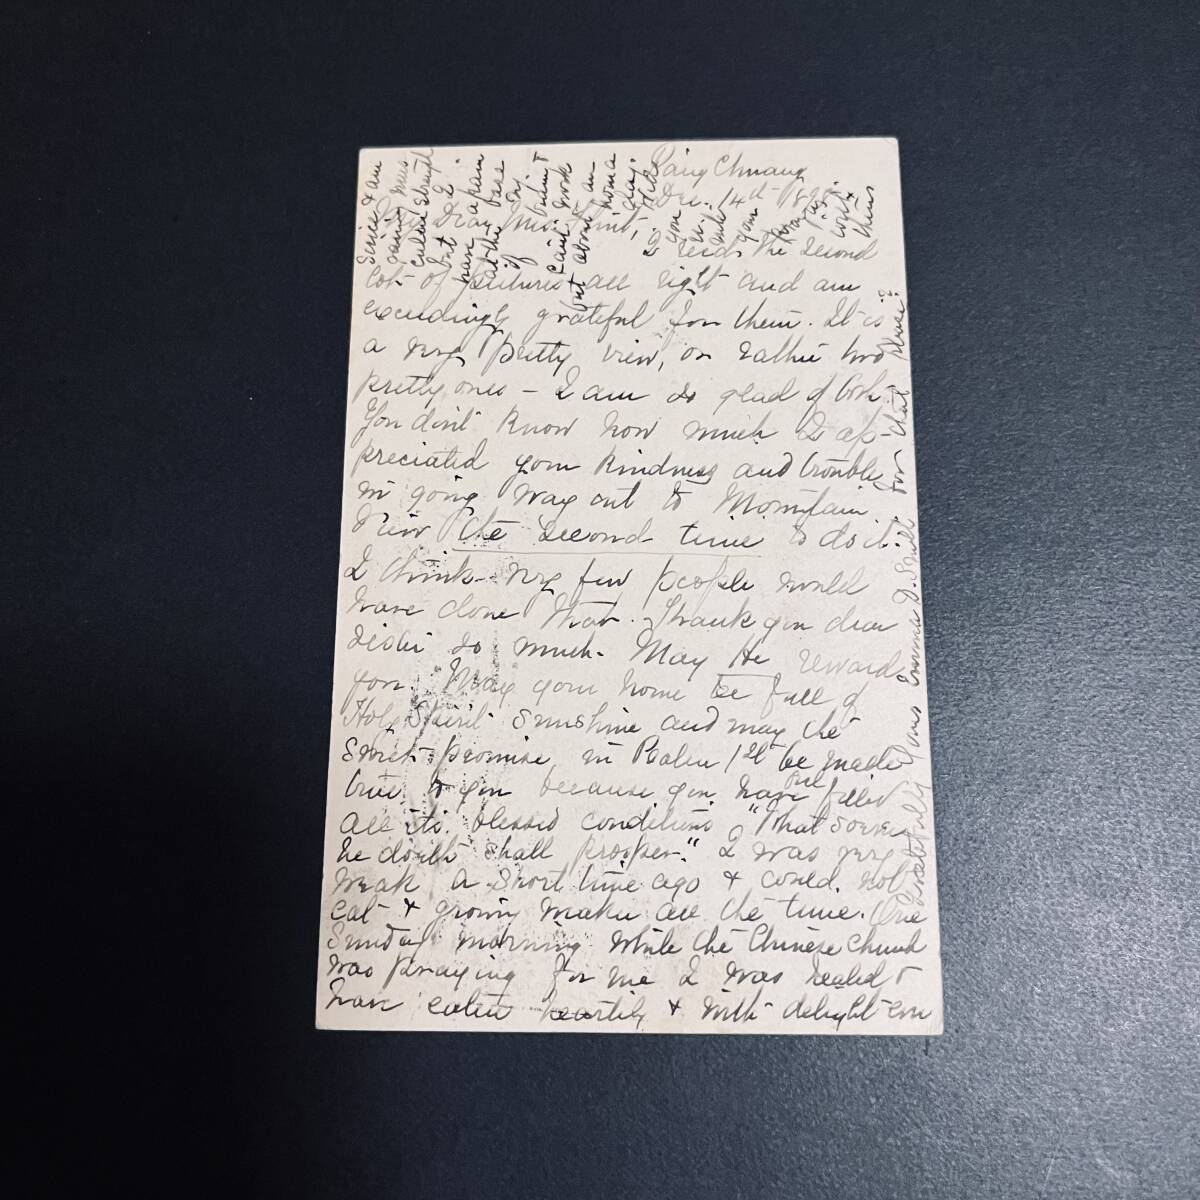 Pang Chuang
Dec. 14th 189
My Dear Mrs.
I recd. the second
lot of pictures all right and am
exceedingly grateful for them. It is
a very pretty view, or rather two
pretty ones - I am so glad of both.
You don't know how much I ap-
preciated your kindness and trouble
in going way out to Mountain
View the second time to do it.
I think very few people would
have done that. Thank you dear
sister so much. May He reward
you. May your home be full of
Holy Spirit sunshine and may the
sweet promise in Psalm 1st be made
true to you because you have ful filled
all its blessed conditions "Whatsoever
he doeth shall prosper." I was very
weak a short time ago & could not
eat & growing weaker all the time. One
Sunday morning while the Chinese Church
was praying for me I was healed &
have eaten heartily & with delight ever
since & am
eaten
but I
have a pain
at the base
if I
can't work
but about an
Will
you
in
your
pray
is
work
this
for that please?
Gratefully Yours Emma D. Smith